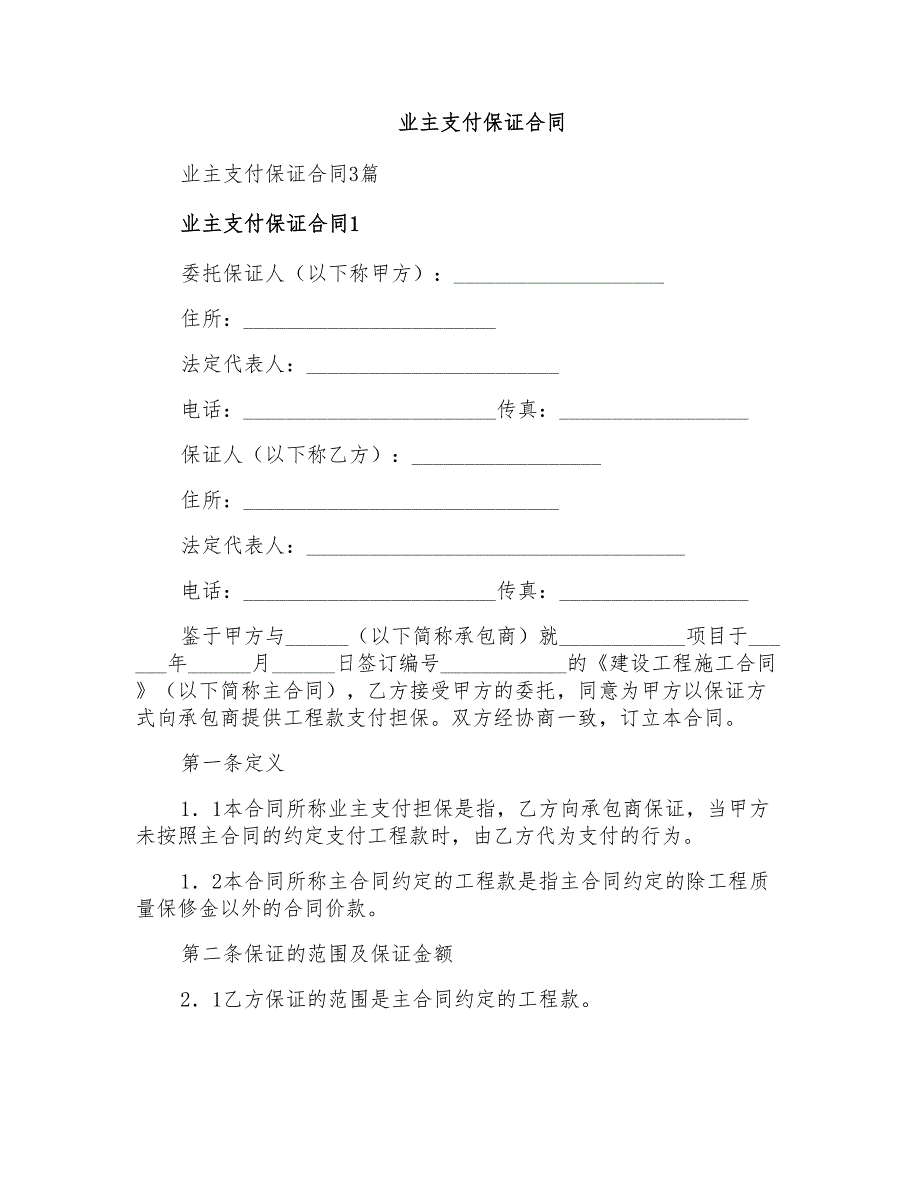 业主支付保证合同
业主支付保证合同3篇
业主支付保证合同1
委托保证人（以下称甲方）：____________________
住所：________________________
法定代表人：________________________
电话：________________________传真：__________________
保证人（以下称乙方）：__________________
住所：______________________________
法定代表人：____________________________________
电话：________________________传真：__________________
鉴于甲方与______（以下简称承包商）就____________项目于___
___年______月______日签订编号____________的《建设工程施工合同
》（以下简称主合同），乙方接受甲方的委托，同意为甲方以保证方
式向承包商提供工程款支付担保。双方经协商一致，订立本合同。
第一条定义
1．1本合同所称业主支付担保是指，乙方向承包商保证，当甲方
未按照主合同的约定支付工程款时，由乙方代为支付的行为。
1．2本合同所称主合同约定的工程款是指主合同约定的除工程质
量保修金以外的合同价款。
第二条保证的范围及保证金额
2．1乙方保证的范围是主合同约定的工程款。